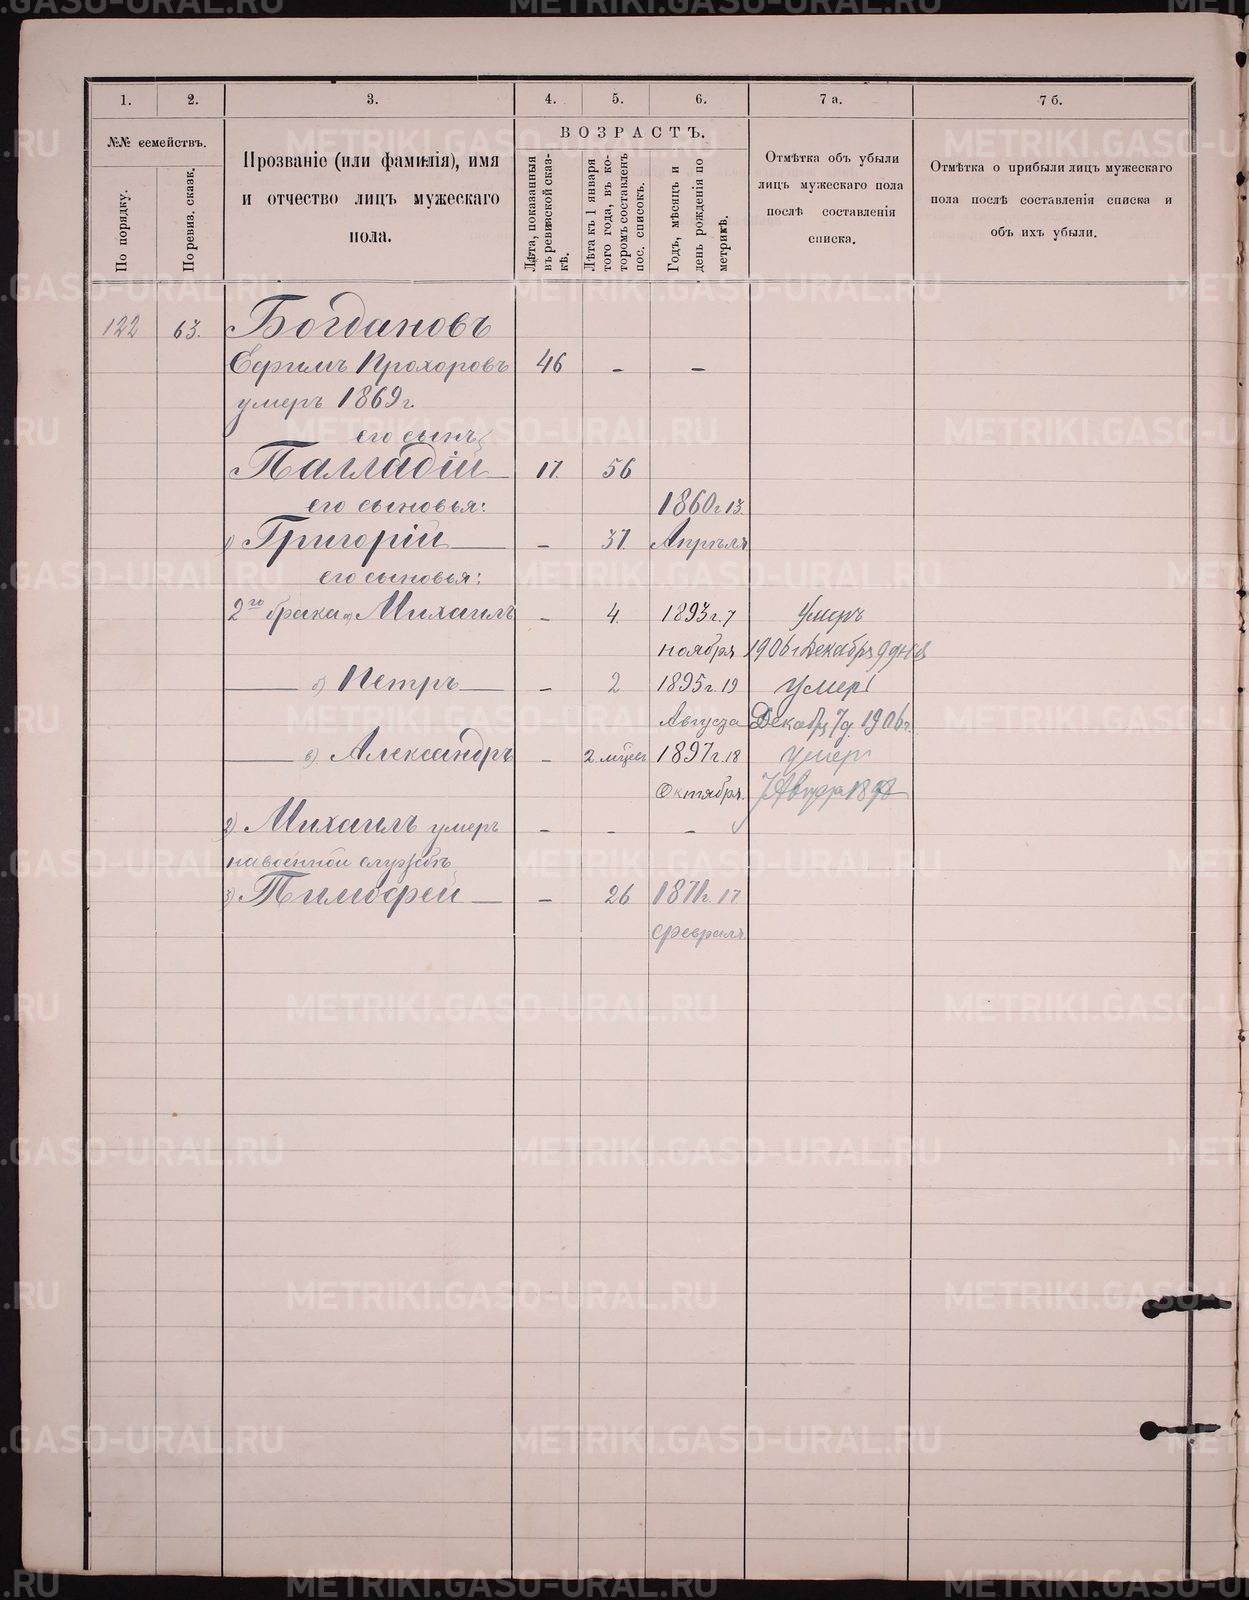 1. 2. 3. 4. 5. 6. 7 а. 7 б.
№№ семействъ.
По порядку.
По ревиз. сказк.
Прозваніе (или фамилія), имя
и отчество лицъ мужескаго
пола.
ВОЗРАСТЪ.
Лѣта, показанныя
въ ревизской сказ-
кѣ.
Лѣта къ 1 января
того года, въ ко-
торомъ составленъ
пос. списокъ.
Годъ, мѣсяцъ и
день рожденія по
метрикѣ.
Отмѣтка объ убыли
лицъ мужескаго пола
послѣ составленія
списка.
Отмѣтка о прибыли лицъ мужескаго
пола послѣ составленія списка и
объ ихъ убыли.
122 63. Богдановъ
Ефимъ Прохоровъ 46 – –
умеръ 1869 г.
его сынъ
Палладій 17. 56
его сыновья: 1860 г. 13
1) Григорій – 37. Апрѣля
его сыновья:
2го брака а) Михаилъ – 4. 1893 г. 7 Умеръ
ноября 1906 г Декабря 9 дня
б) Петръ – 2 1895 г. 19 умеръ
Августа Декабр 7 д. 1906 г.
в) Александръ – 2 мѣсяц 1897 г. 18 умеръ
Октября. 7 Августа 1898
2) Михаилъ умеръ – – –
на военной службѣ
3) Тимофей – 26 1871 г. 17
февраля
METRIKI.GASO-URAL.RU